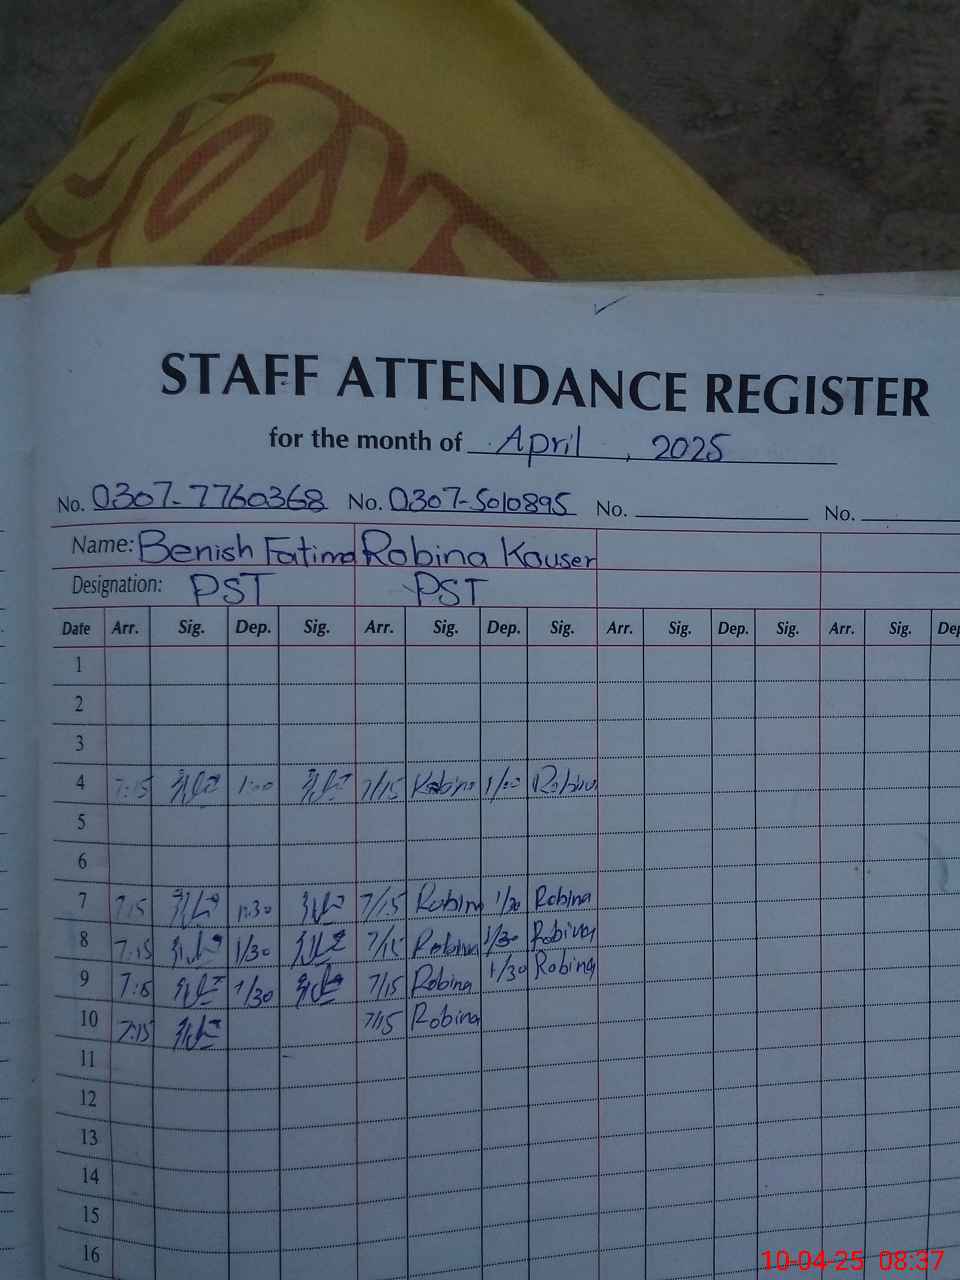 STAFF ATTENDANCE REGISTER
for the month of April, 2025
No. 0307-7760368 No. 0307-5010895 No. No.
Name: Benish Fatima Robina Kauser
Designation: PST PST
Date Arr. Sig. Dep. Sig. Arr. Sig. Dep. Sig. Arr. Sig. Dep. Sig. Arr. Sig. Dep
1
2
3
4 7:15 1:00 7/15 Robina 1/00 Robina
5
6
7 7:15 1:30 7/15 Robina 1/30 Robina
8 7:15 1/30 7/15 Robina 1/30 Robina
9 7:15 1/30 7/15 Robina 1/30 Robina
10 7:15 7/15 Robina
11
12
13
14
15
16
10-04-25 08:37